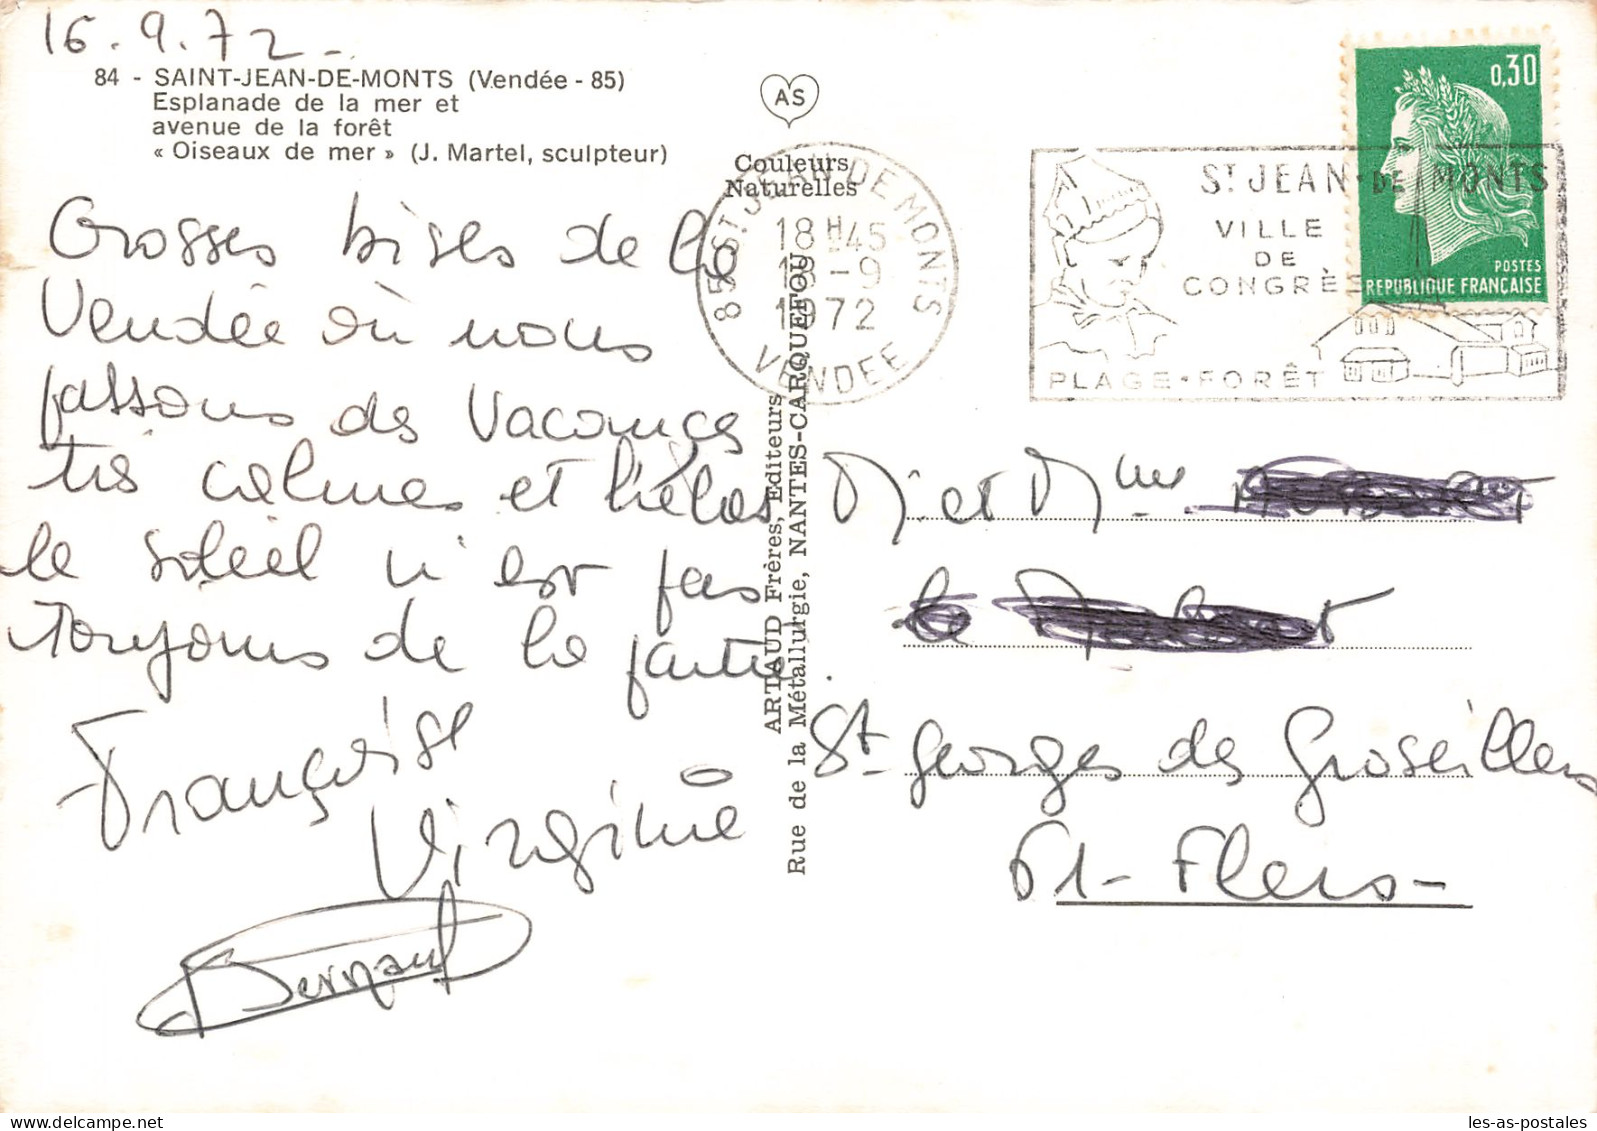 16.9.72 -
84 - SAINT-JEAN-DE-MONTS (Vendée - 85)
Esplanade de la mer et
avenue de la forêt
« Oiseaux de mer » (J. Martel, sculpteur)
AS
Couleurs
Naturelles
Grosses bises de la
Vendée où nous
passons des vacances
très calmes et hélas
le soleil n'est pas
toujours de la partie.
Françoise
Virginie
Bernard
ARTAUD Frères, Editeurs
Rue de la Métallurgie, NANTES-CARQUEFOU
85 ST JEAN DE MONTS
18H45
18-9
1972
VENDEE
ST JEAN-DE-MONTS
VILLE
DE
CONGRÈS
PLAGE-FORÊT
0,30
POSTES
REPUBLIQUE FRANÇAISE
M. et Mme
le
St Georges des Groseillers
61 - Flers -
les-as-postales